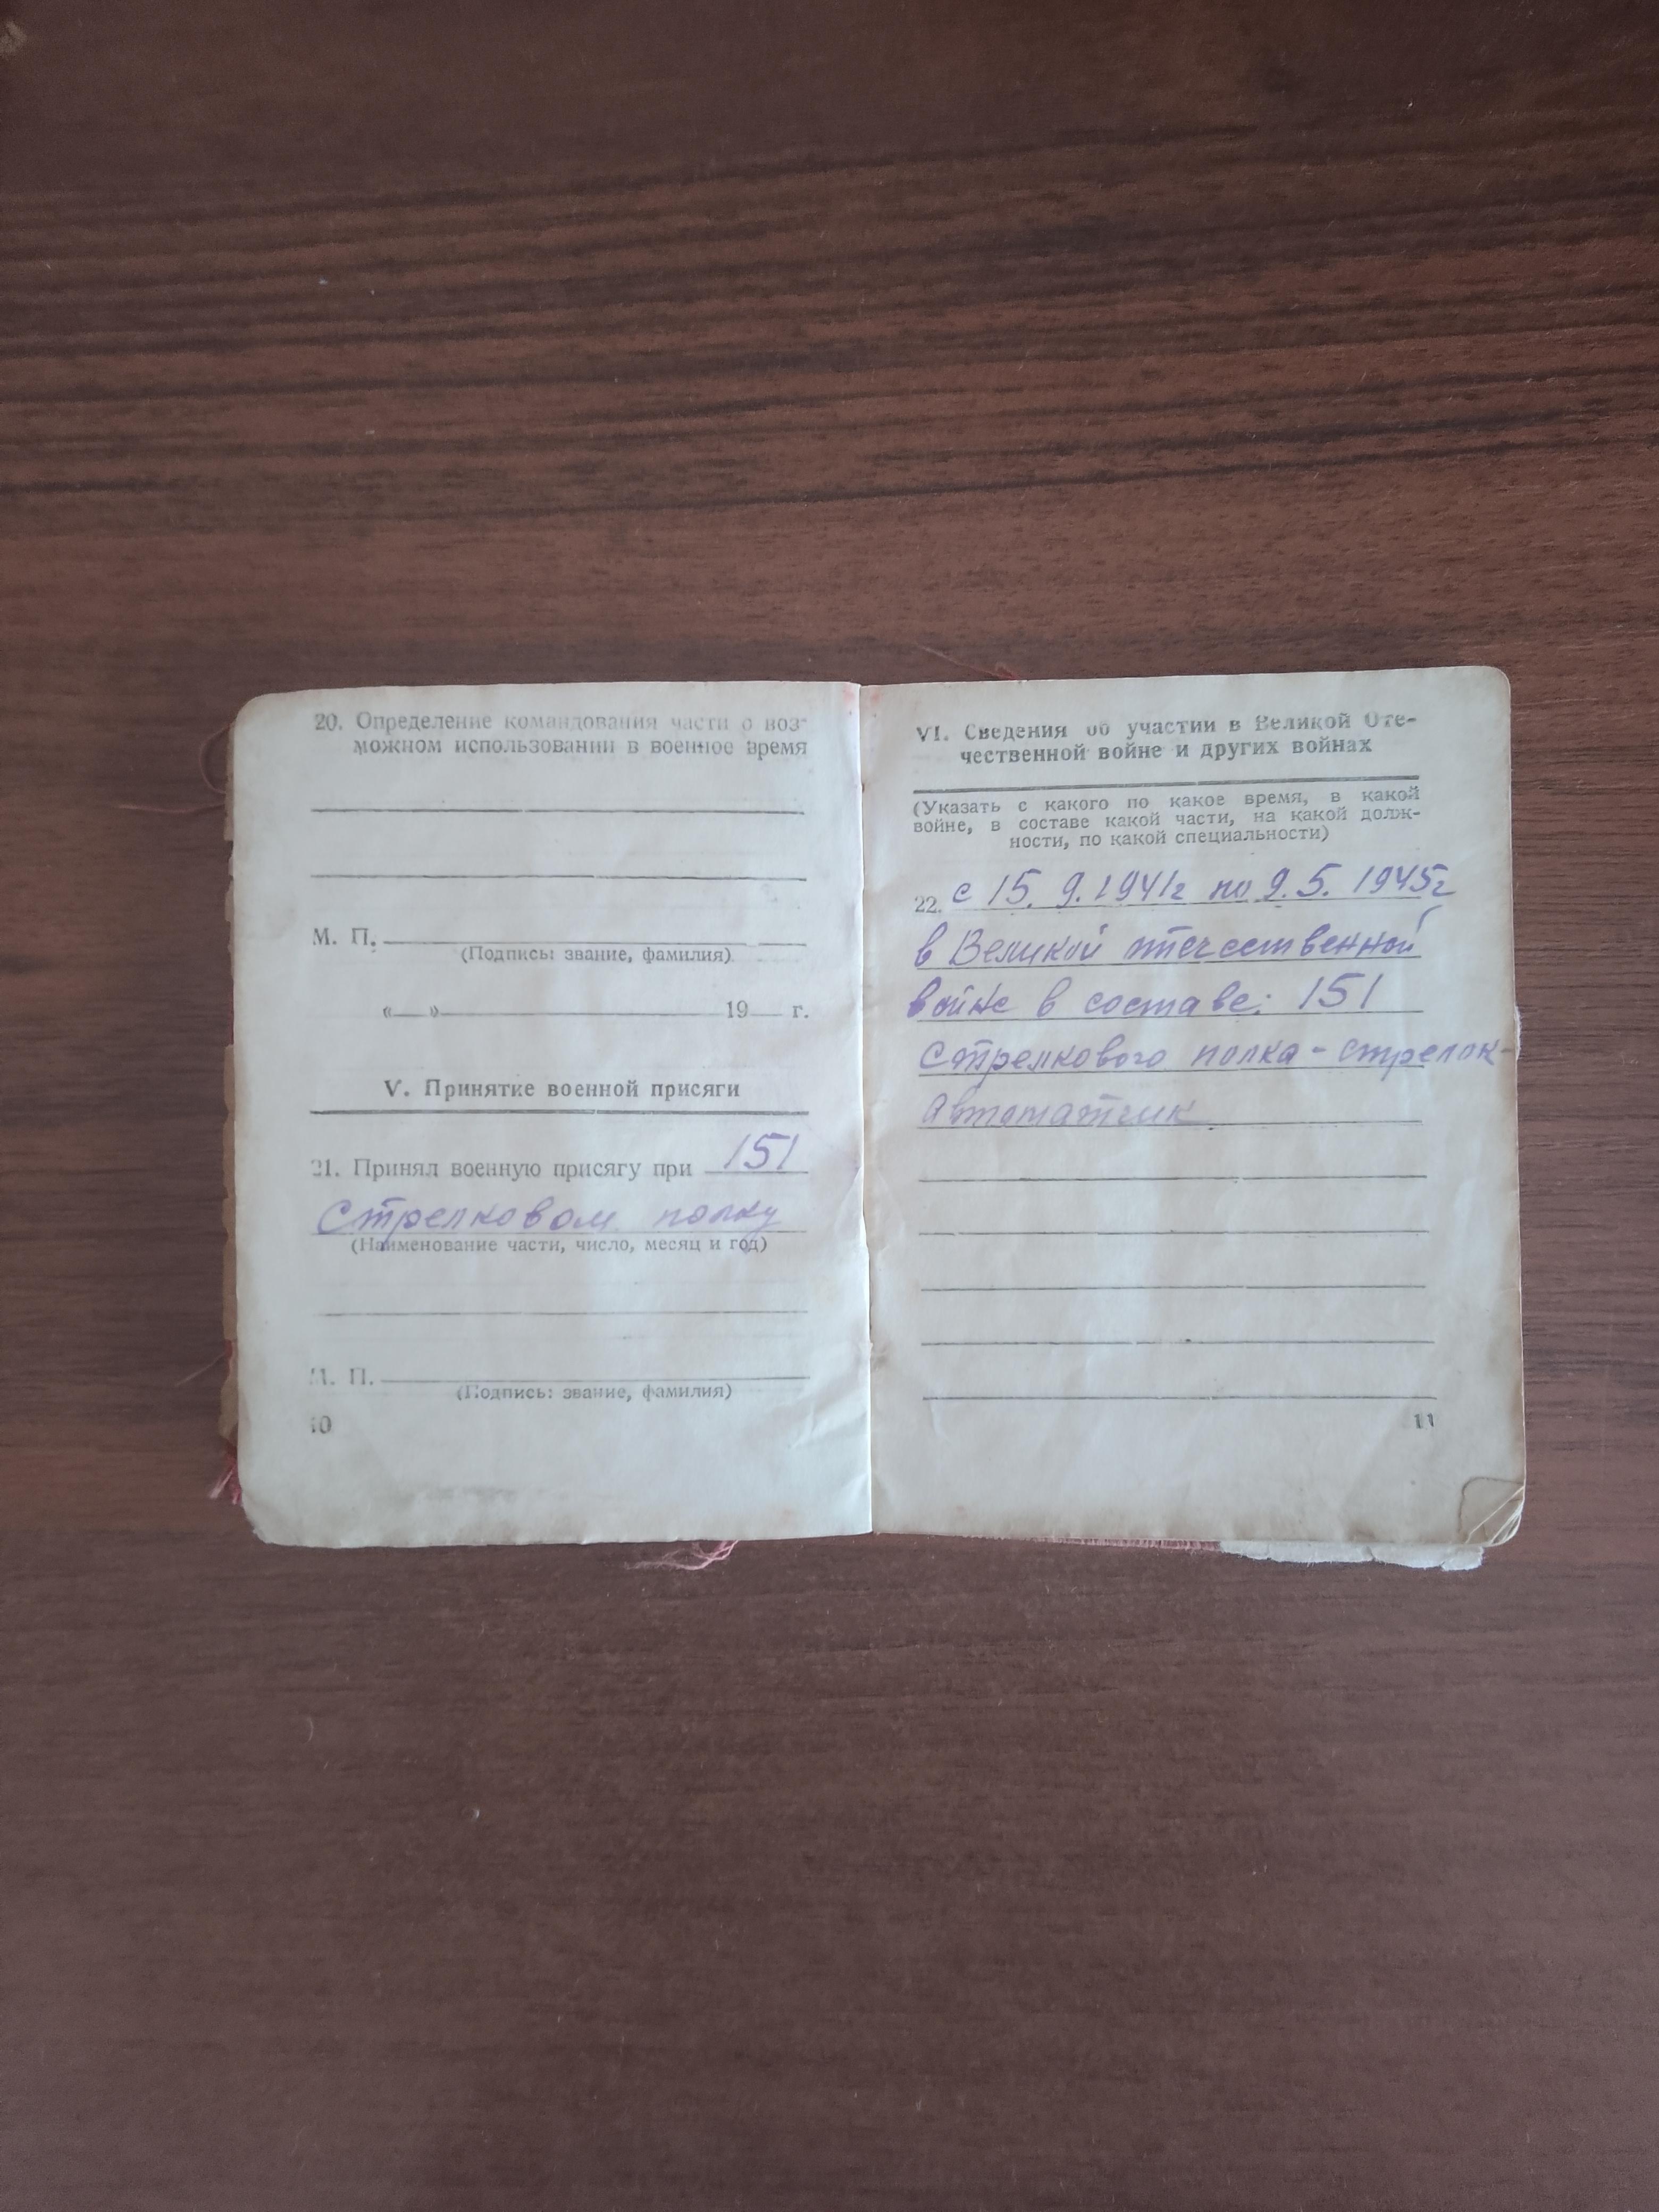 20. Определение командования части о воз-
можном использовании в военное время
М. П.
(Подпись: звание, фамилия)
«__» 19__ г.
V. Принятие военной присяги
21. Принял военную присягу при 151
Стрелковом полку
(Наименование части, число, месяц и год)
М. П.
(Подпись: звание, фамилия)
10
VI. Сведения об участии в Великой Оте-
чественной войне и других войнах
(Указать с какого по какое время, в какой
войне, в составе какой части, на какой долж-
ности, по какой специальности)
22. с 15. 9. 1941г по 9. 5. 1945г
в Великой отечественной
войне в составе: 151
Стрелкового полка - стрелок-
Автоматчик
11